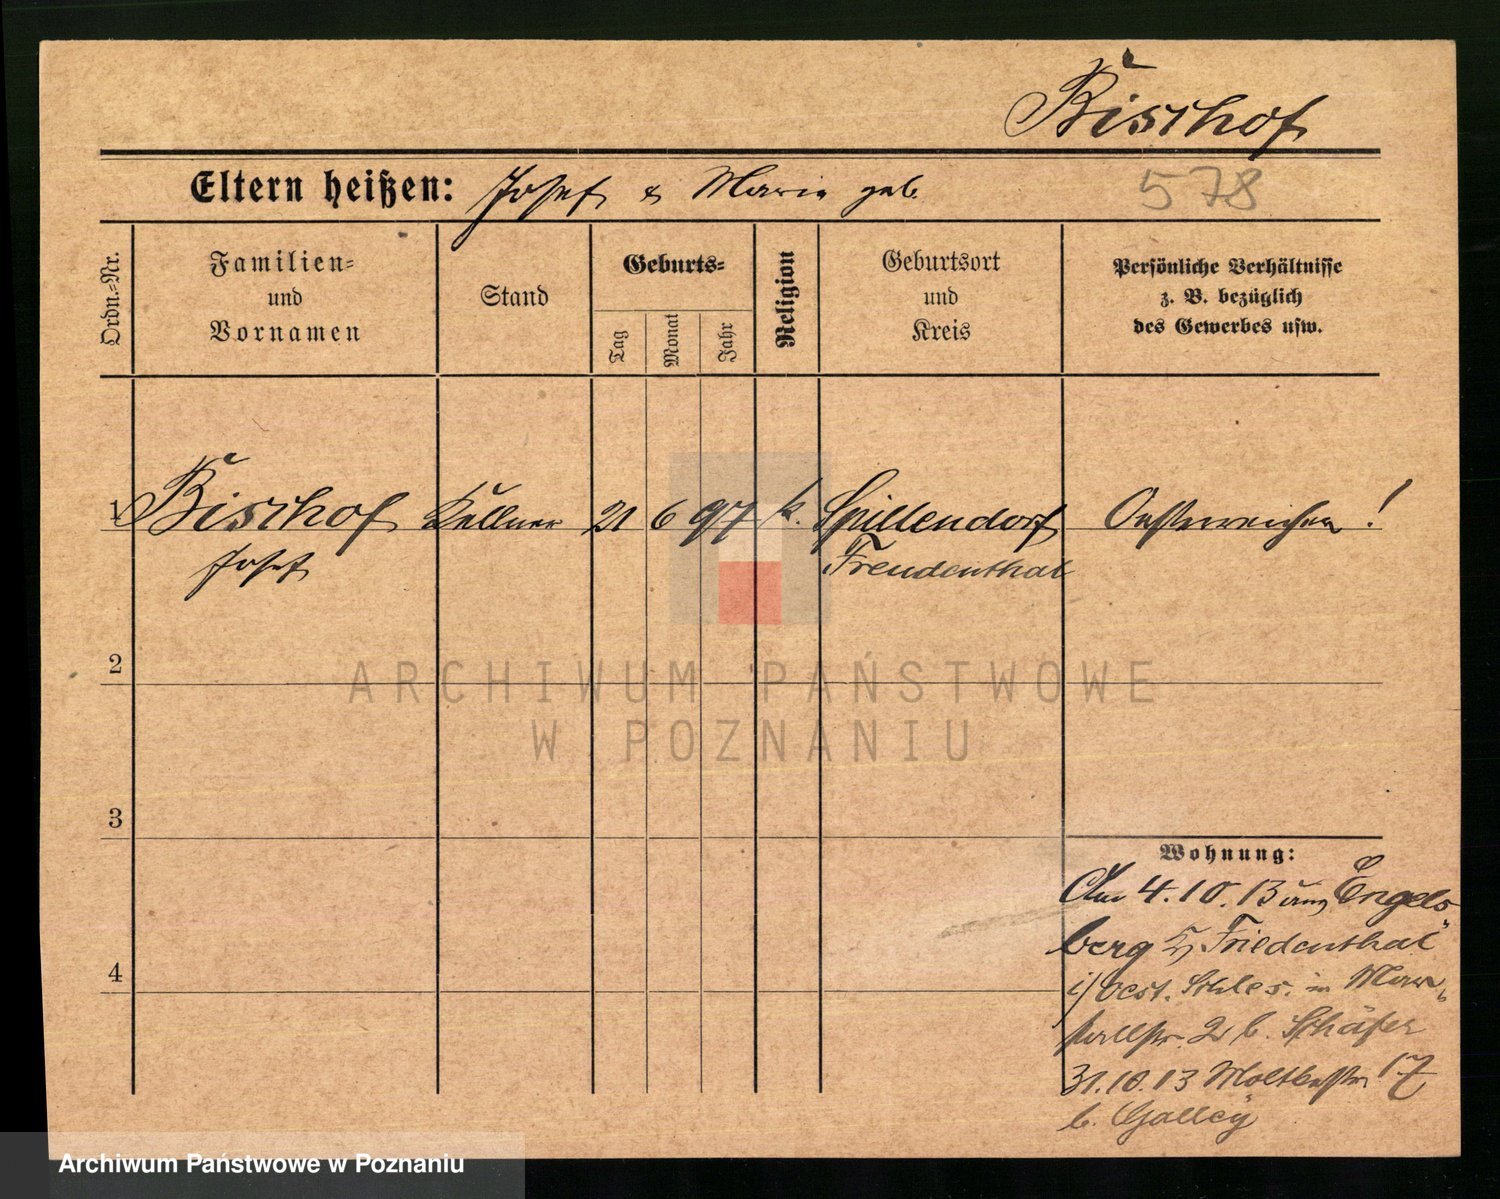 Bischof
Eltern heißen: Josef & Marie geb.
578
Ordn.=Nr.
Familien=
und
Vornamen
Stand
Geburts=
Tag
Monat
Jahr
Religion
Geburtsort
und
Kreis
Persönliche Verhältnisse
z. B. bezüglich
des Gewerbes usw.
1 Bischof Kellner 21 6 97 k. Spillendorf Oesterreicher !
Josef Freudenthal
2
ARCHIWUM PAŃSTWOWE
W POZNANIU
3
Wohnung:
Am 4.10.13 Engels
berg Friedenthal
i/Oest. Schles. in Mar
stallstr. 2 b. Schäfer
4
31.10.13 Moltkestr. 17
b. Galley
Archiwum Państwowe w Poznaniu